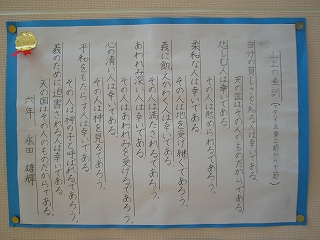 山上の垂訓（マタイ五章三節から十節）
自分の貧しさを知る人は幸いである。
天の国はその人のものだからである。
悲しむ人は幸いである。
その人は慰められるであろう。
柔和な人は幸いである。
その人は地を受け継ぐであろう。
義に飢えかわく人は幸いである。
その人は満たされるであろう。
あわれみ深い人は幸いである。
その人はあわれみを受けるであろう。
心の清い人は幸いである。
その人は神を見るであろう。
平和をもたらす人は幸いである。
その人は神の子とよばれるであろう。
義のために迫害される人は幸いである。
天の国はその人のものだからである。
六年 永田 雄輝